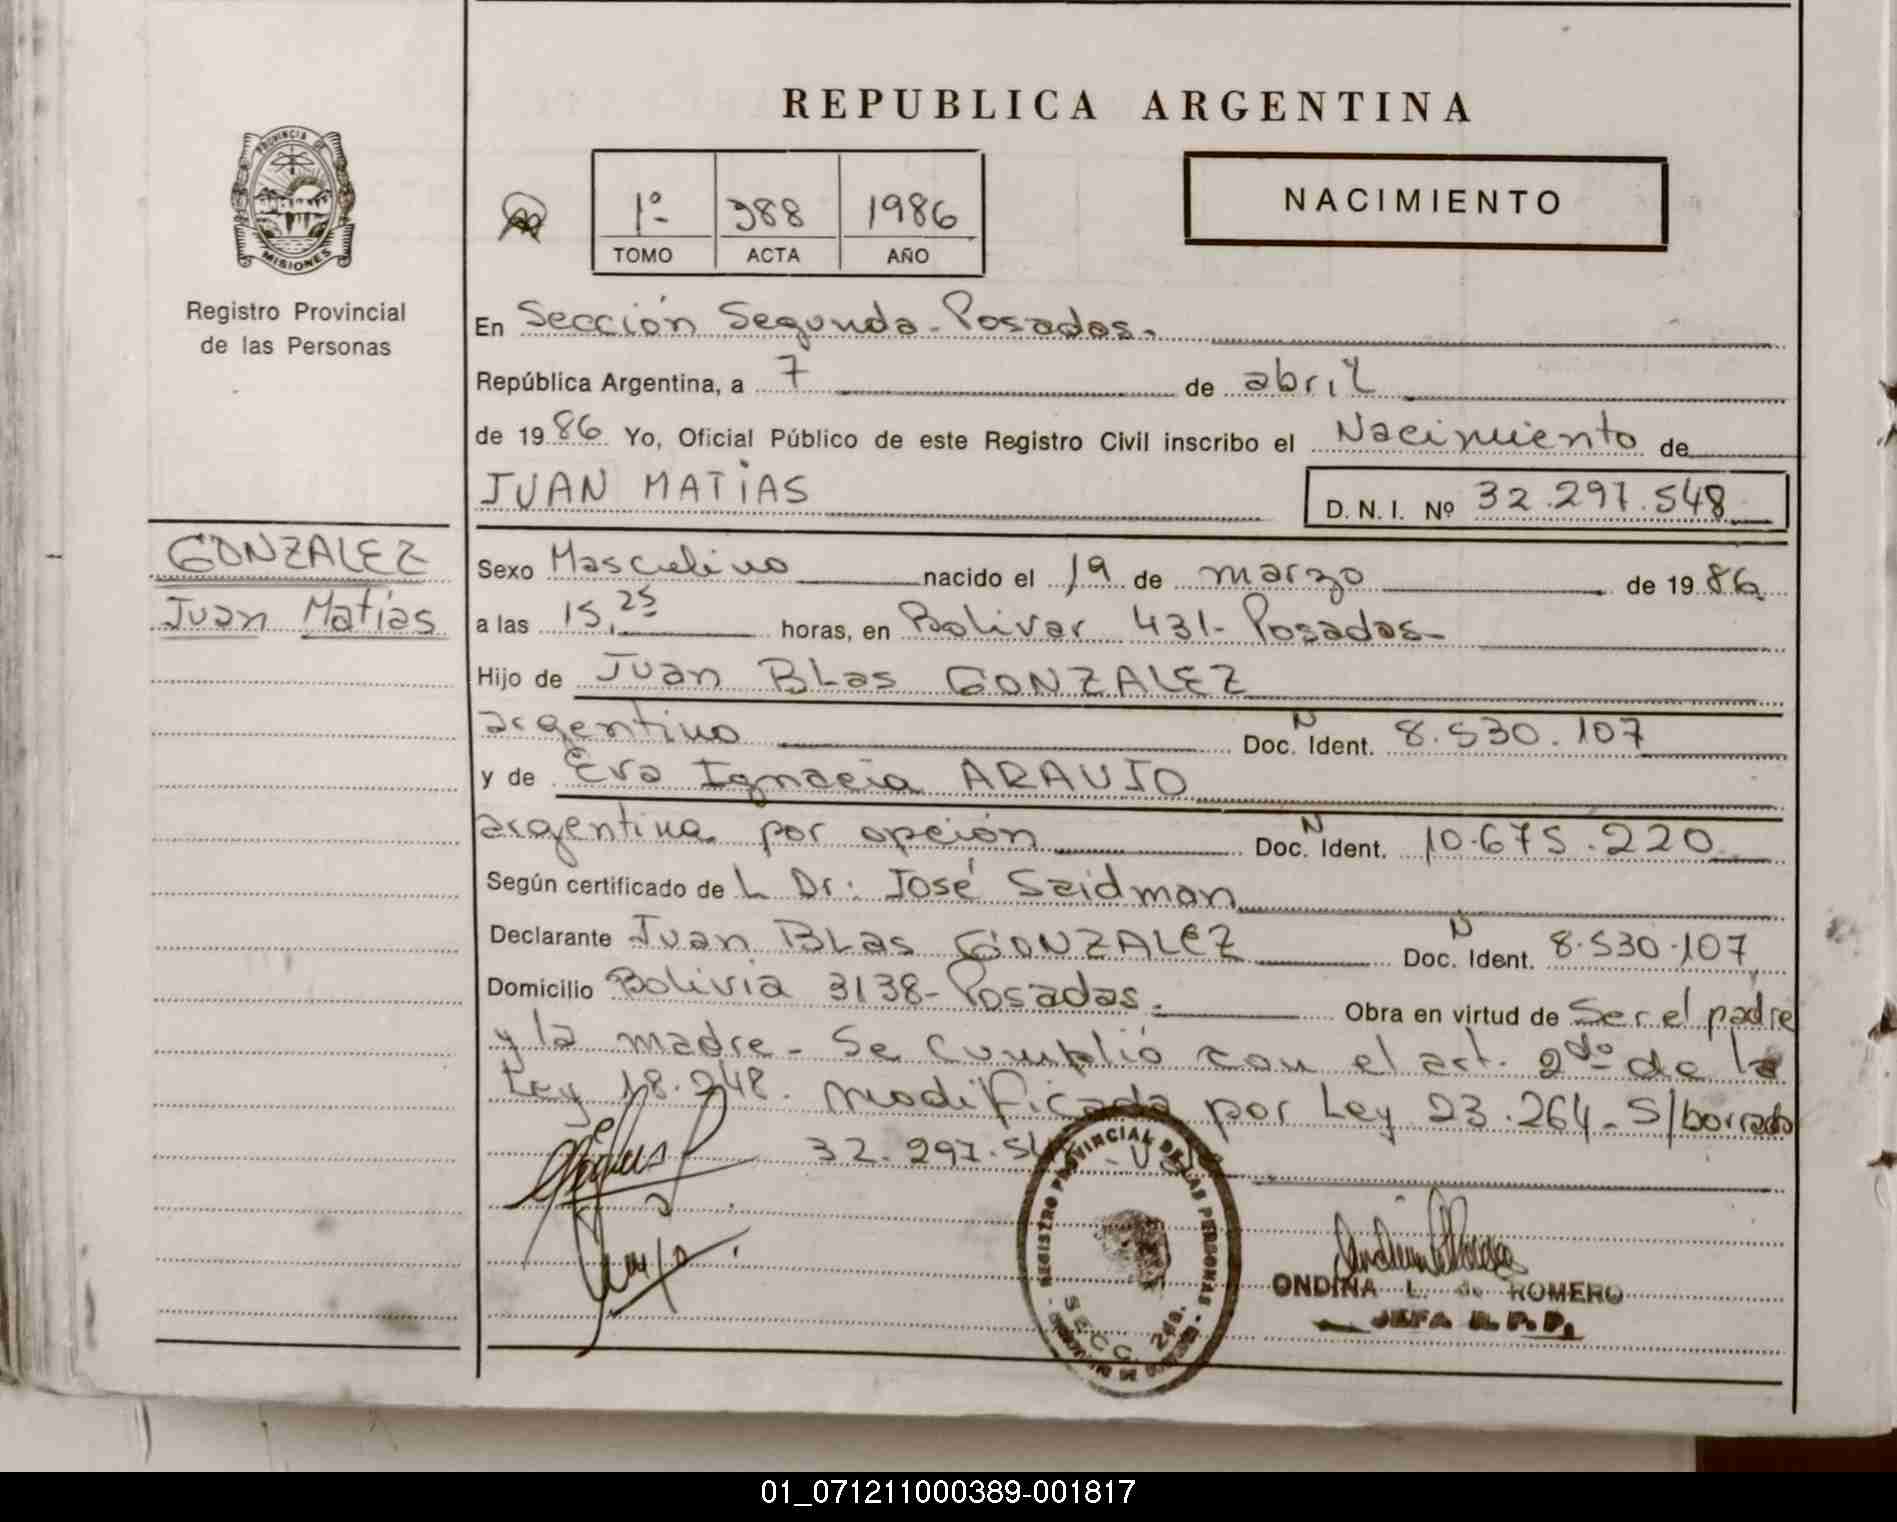 REPUBLICA ARGENTINA
PROVINCIA DE
MISIONES
Registro Provincial
de las Personas
1º 388 1986
TOMO ACTA AÑO
NACIMIENTO
En Sección Segunda - Posadas.
República Argentina, a 7 de abril
de 1986 Yo, Oficial Público de este Registro Civil inscribo el Nacimiento de
JUAN MATíAS D. N. I. Nº 32.297.548
GONZALEZ
Juan Matías
Sexo Masculino nacido el 19 de marzo de 1986
a las 15,25 horas, en Bolivar 431 - Posadas
Hijo de Juan BLas GONZALEZ
argentino Doc. N Ident. 8.530.107
y de Eva Ignacia ARAUJO
argentina por opción Doc. N Ident. 10.675.220
Según certificado de L Dr: José Szidman
Declarante Juan BLas GONZALEZ Doc. N Ident. 8.530.107
Domicilio Bolivia 3138 - Posadas. Obra en virtud de Ser el padre
y la madre - Se cumplió con el art. 2do de la
Ley 18.248. modificada por Ley 23.264 - S/borrado
32.297.54
REGISTRO PROVINCIAL DE LAS PERSONAS
SECC. 2da.
ONDINA L. de ROMERO
JEFA R. P. P.
01_071211000389-001817